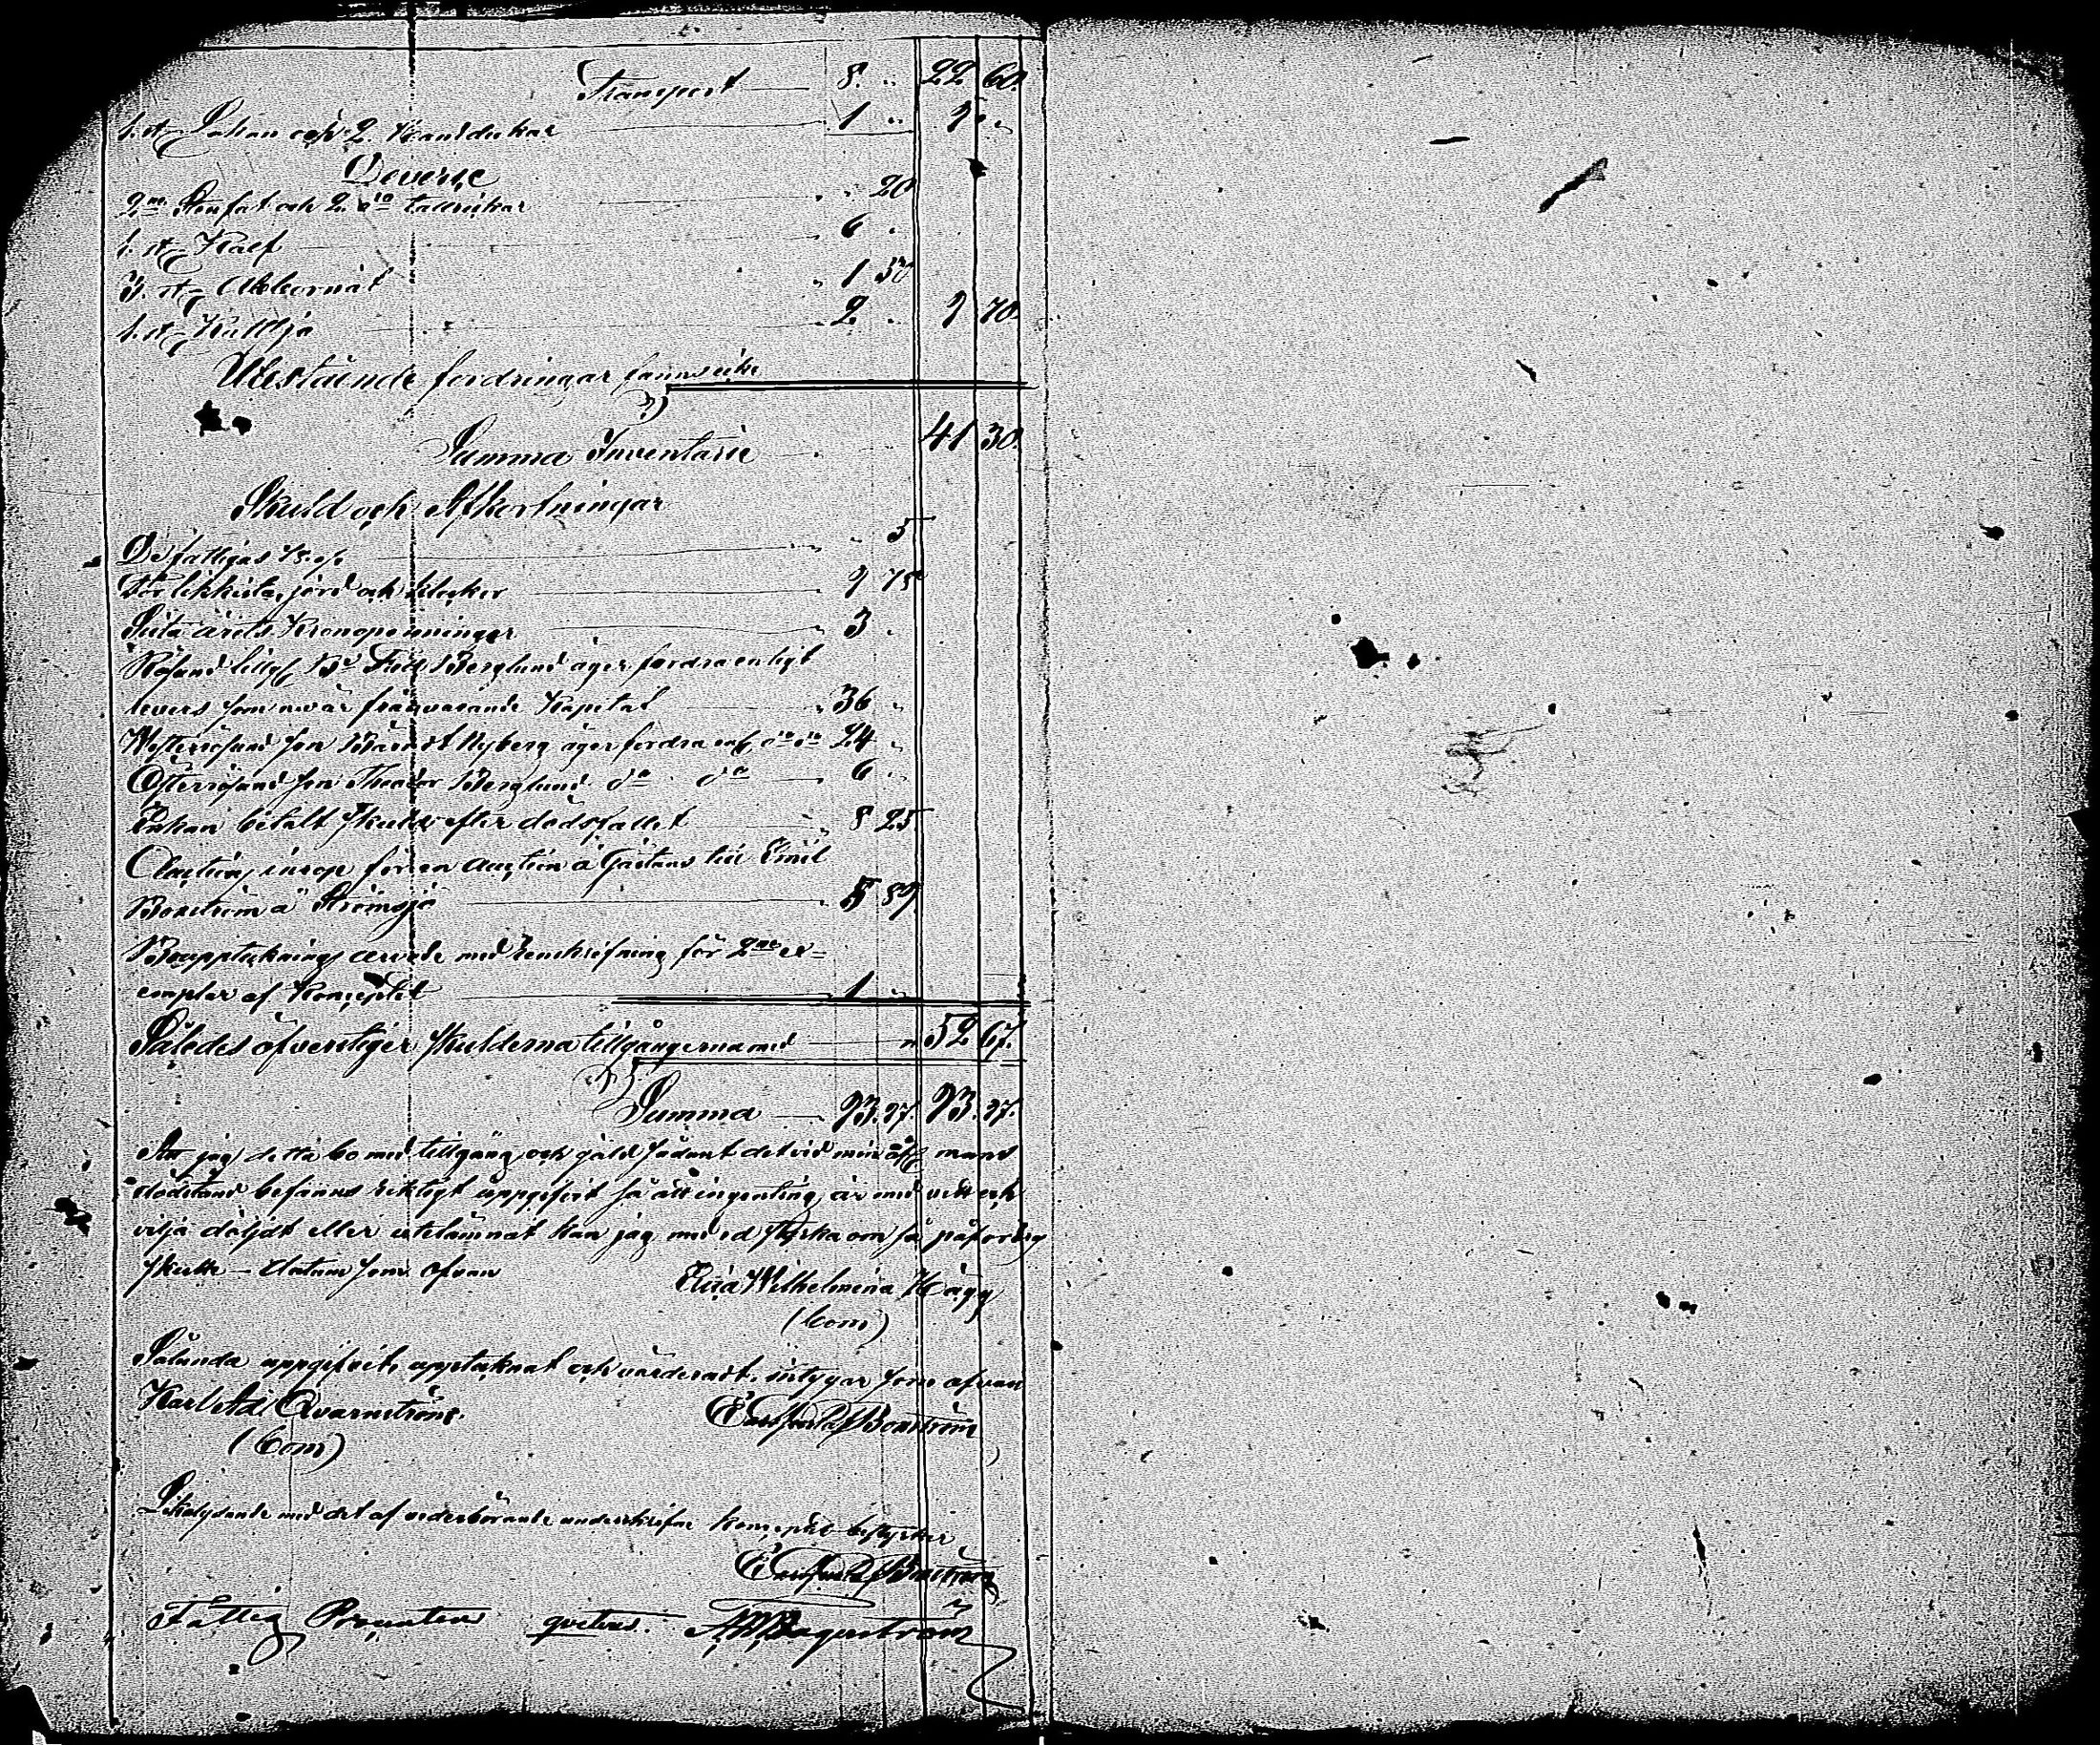 Transport — 8. „ 22 60.
1. st Lakan och 2. Handdukar — 1 „ 9 „
Diverse
2ne Stenfat och 2. dito tallrickar — „ 20
1. st Kalf — 6 „
3. st Abbornät — „ 1 50
1. st — 2 „ 9 70.
Utestående fordringar fanns icke
Summa Inventarie — 41 30.
Skuld och Afkortningar
De fattigas 1/8 % — „ 5
För likkista, jord och klockor — 9 75
Sista årets Kronopenningar — „ 3 „
Berglund äger fordra enligt
revers som nu är frånvarande Kapital — „ 36 „
Nyberg äger fordra enl do do 24 „
Berglund do do — „ 6 „
Enkan betalt skuld efter dödsfallet — „ 8 25
Auctions inrop för en auction å till Emil
Boström å Strömsjö — „ 5 89.
Bouppteknings arvode med renskrifning för 2ne ex-
emplar af Konceptet — 1 „
Således öfverstiger skulderna tillgångerna med — „ 52 67.
Summa — 93.97. 93.97.
Att jag detta bo med tillgång och gäld sådant det vid min afl mans
dödstånd befanns riktigt uppgifvit så att ingenting är med vett och
vilja döljdt eller utelämnat kan jag med ed styrka om så påfordras
skulle — datum som ofvan
Wilhelmina Hägg
(bom)
Sålunda uppgifvit, upptecknat och värderadt, intygar som ofvan
Karl Ad Qvarnström.
(bom)
Boström
Likalydande med det af vederbörande underskrifne Konceptet bestyrker
Boström
Fattig Procenten qvitteras.